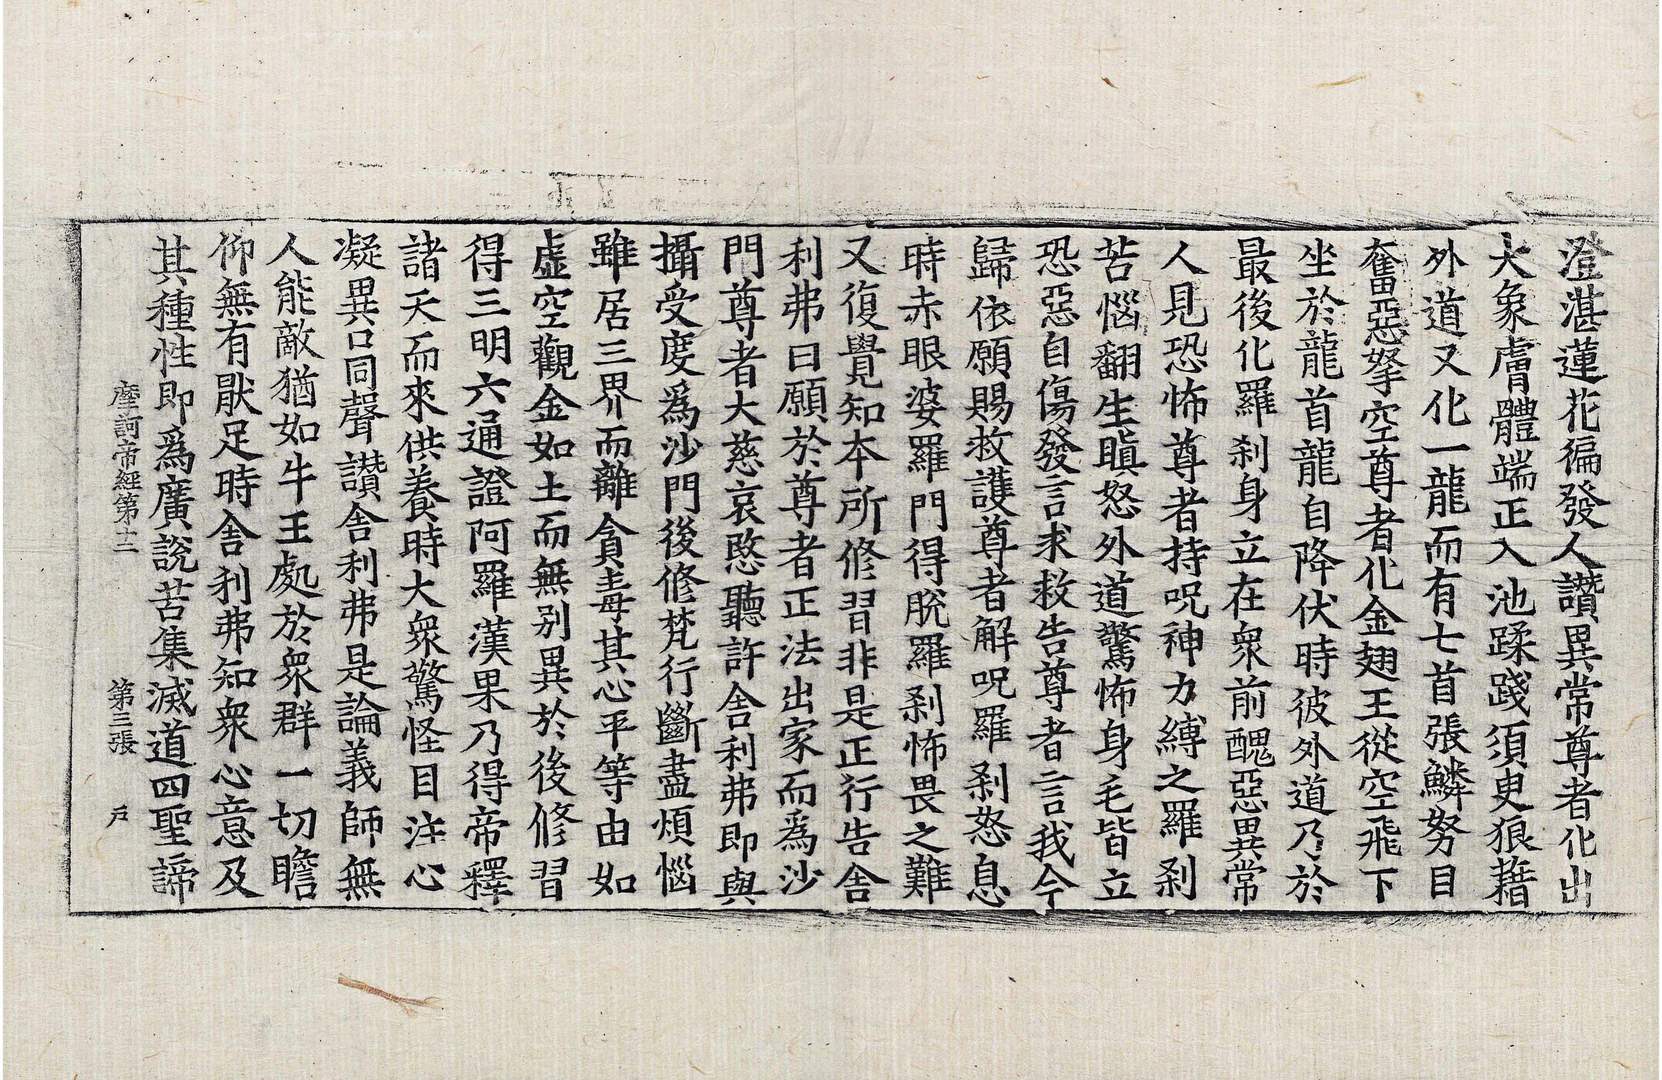 澄湛蓮花徧發人讚異常尊者化出
大象膚體端正入池蹂踐須臾狼藉
外道又化一龍而有七首張鱗努目
奮惡拏空尊者化金翅王從空飛下
坐於龍首龍自降伏時彼外道乃於
最後化羅刹身立在衆前醜惡異常
人見恐怖尊者持呪神力縛之羅刹
苦惱翻生瞋怒外道驚怖身毛皆立
恐惡自傷發言求救告尊者言我今
歸依願賜救護尊者解呪羅刹怒息
時赤眼婆羅門得脫羅刹怖畏之難
又復覺知本所修習非是正行告舍
利弗曰願於尊者正法出家而爲沙
門尊者大慈哀愍聽許舍利弗即與
攝受度爲沙門後修梵行斷盡煩惱
雖居三界而離貪毒其心平等由如
虛空觀金如土而無别異於後修習
得三明六通證阿羅漢果乃得帝釋
諸天而來供養時大衆驚怪目注心
凝異口同聲讚舍利弗是論義師無
人能敵猶如牛王處於衆群一切瞻
仰無有猒足時舍利弗知衆心意及
其種性即爲廣說苦集滅道四聖諦
摩訶帝經第十二 第三張 戶